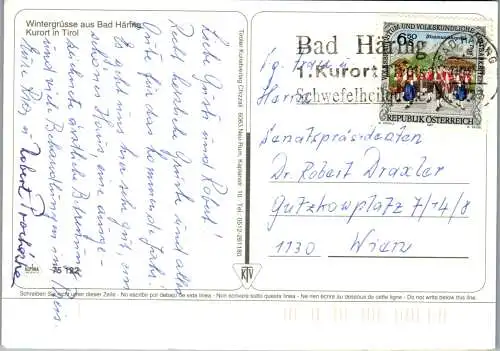 Wintergrüsse aus Bad Häring
Kurort in Tirol
Liebe Gusti und Robert!
Recht herzliche Grüsse und alles
Gute für das kommende Jahr.
Es geht uns hier sehr gut, ein
schönes Haus, eine ausge-
zeichnete ärztliche Betreuung
und viele Behandlungen und Ruhe.
Eure Rosy u. Robert Prochaska
ALPINA 75 192
Tiroler Kunstverlag Chizzali 6063 Neu-Rum, Kaplanstr. 10 Tel. 0512-261180
KTV
Bad Häring
1. Kurort
Schwefelheilquelle
VOLKSBRAUCHTUM UND VOLKSKUNDLICHE
6,50
Blumenteufel
REPUBLIK ÖSTERREICH
Herrn
Senatspräsidenten
Dr. Robert Draxler
Gutzkowplatz 7/14/8
1130 Wien
Schreiben Sie nicht unter dieser Zeile - No escribir por debajo de esta linea - Non scrivere sotto questa linea - Ne rien écrire au dessous de cette ligne - Do not write below this line